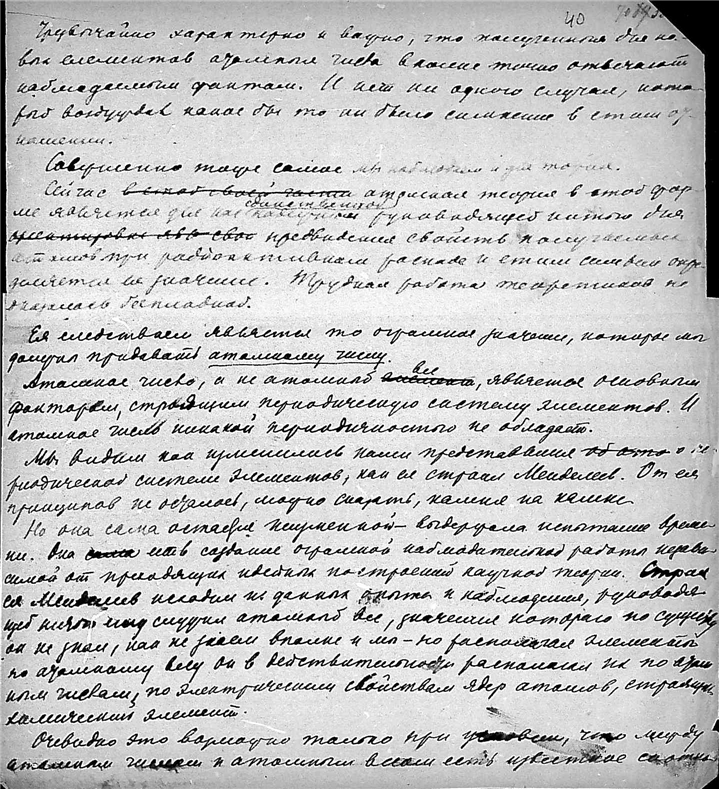 40
Чрезвычайно характерно и важно, что полученныя для но-
вых элементов атомныя числа вполне точно отвечают
наблюдаемым фактам. И нет ни одного случая, кото-
рый возбуждал какое бы то ни было сомнение в этом от-
ношении.
Совершенно тоже самое мы наблюдаем и для теории.
Сейчас в этой своей части атомная теория в этой фор-
единственной
ме является для нас руководящей нитью для
ориентировки предвидения свойств получаемых
атомов при радиоактивном распаде и этим самым опре-
деляется ее значение. Трудная работа теоретиков не
оказалась бесплодной.
Ея следствием является то огромное значение, которое мы
должны придавать атомному числу.
вес
Атомное число, а не атомный, является основным
фактором, строящим периодическую систему элементов. И
атомное число никакой периодичностью не обладает.
Мы видим как изменились наши представления о пе-
риодической системе элементов, как ее строил Менделеев. От ея
принципов не осталось, можно сказать, камня на камне
Но она сама осталась неизменной – выдержала испытание време-
ни. Она сама есть создание огромной наблюдательной работы незави-
симой от преходящих идейных построений научной теории. Строя
ея Менделеев исходил из данных опыта и наблюдения, руководя
щей нитью ему служил атомный вес, значения которого по существу
он не знал, как не знаем вполне и мы – но располагая элементы
по атомному весу он в действительности располагал их по атом-
ным числам, по электрическим свойствам ядер атомов, строящих
химический элемент.
Очевидно это возможно только при условии, что между
атомным числом и атомным весом есть известное соотно-